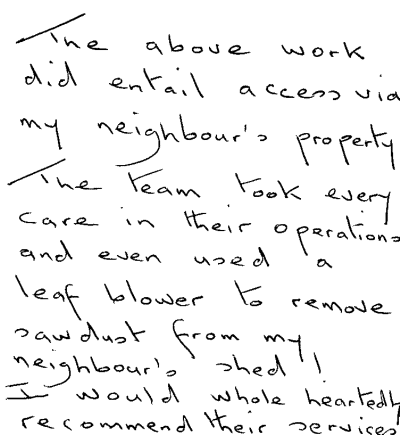 The above work
did entail access via
my neighbour's property
The team took every
care in their operations
and even used a
leaf blower to remove
sawdust from my
neighbour's shed!
I would whole heartedly
recommend their services